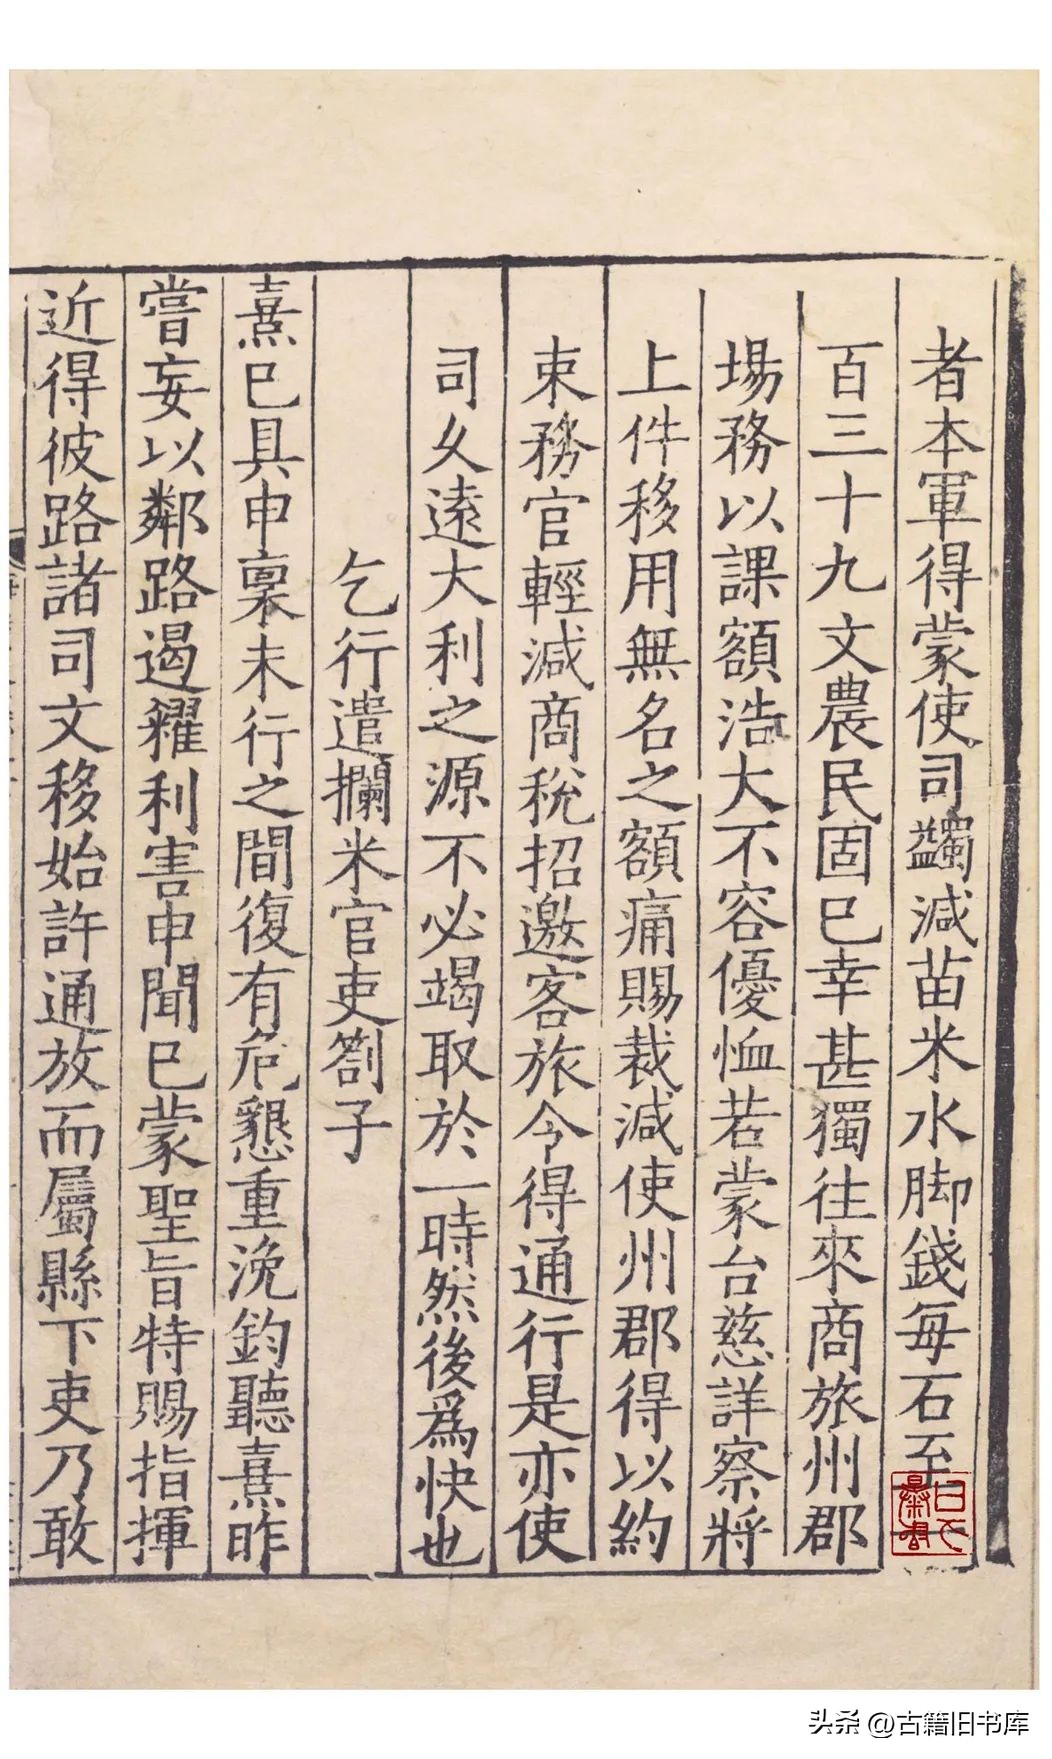 者本軍得蒙使司蠲減苗米水脚錢每石至
百三十九文農民固已幸甚獨往來商旅州郡
場務以課額浩大不容優恤若蒙台慈詳察將
上件移用無名之額痛賜裁減使州郡得以約
束務官輕減商稅招邀客旅令得通行是亦使
司久遠大利之源不必竭取於一時然後爲快也
乞行遣攔米官吏劄子
熹已具申稟未行之間復有危懇重浼鈞聽熹昨
嘗妄以鄰路遏糴利害申聞已蒙聖旨特賜指揮
近得彼路諸司文移始許通放而屬縣下吏乃敢
头条 @古籍旧书库